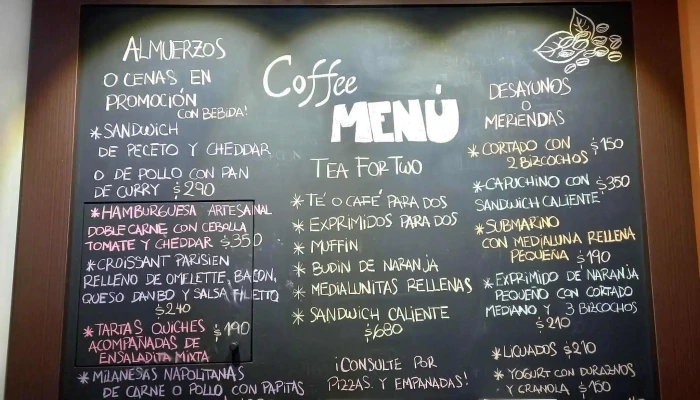 ALMUERZOS
O CENAS EN
PROMOCIÓN
CON BEBIDA!
* SANDWICH
DE PECETO Y CHEDDAR
O DE POLLO CON PAN
DE CURRY $290
* HAMBURGUESA ARTESANAL
DOBLE CARNE CON CEBOLLA
TOMATE Y CHEDDAR $350
* CROISSANT PARISIEN
RELLENO DE OMELETTE, BACON,
QUESO DANBO Y SALSA FILETTO
$240
* TARTAS QUICHES $190
ACOMPAÑADAS DE
ENSALADITA MIXTA
* MILANESAS NAPOLITANAS
DE CARNE O POLLO, CON PAPITAS
Coffee
MENÚ
TEA FOR TWO
* TÉ O CAFÉ PARA DOS
* EXPRIMIDOS PARA DOS
* MUFFIN
* BUDIN DE NARANJA
* MEDIALUNITAS RELLENAS
* SANDWICH CALIENTE
$680
¡CONSULTE POR
PIZZAS Y EMPANADAS!
DESAYUNOS
O
MERIENDAS
* CORTADO CON $150
2 BIZCOCHOS
* CAPUCHINO CON $350
SANDWICH CALIENTE
* SUBMARINO
CON MEDIALUNA RELLENA
PEQUEÑA $190
* EXPRIMIDO DE NARANJA
PEQUEÑO CON CORTADO
MEDIANO Y 3 BIZCOCHOS
$210
* LICUADOS $210
* YOGURT CON DURAZNOS
Y GRANOLA $150